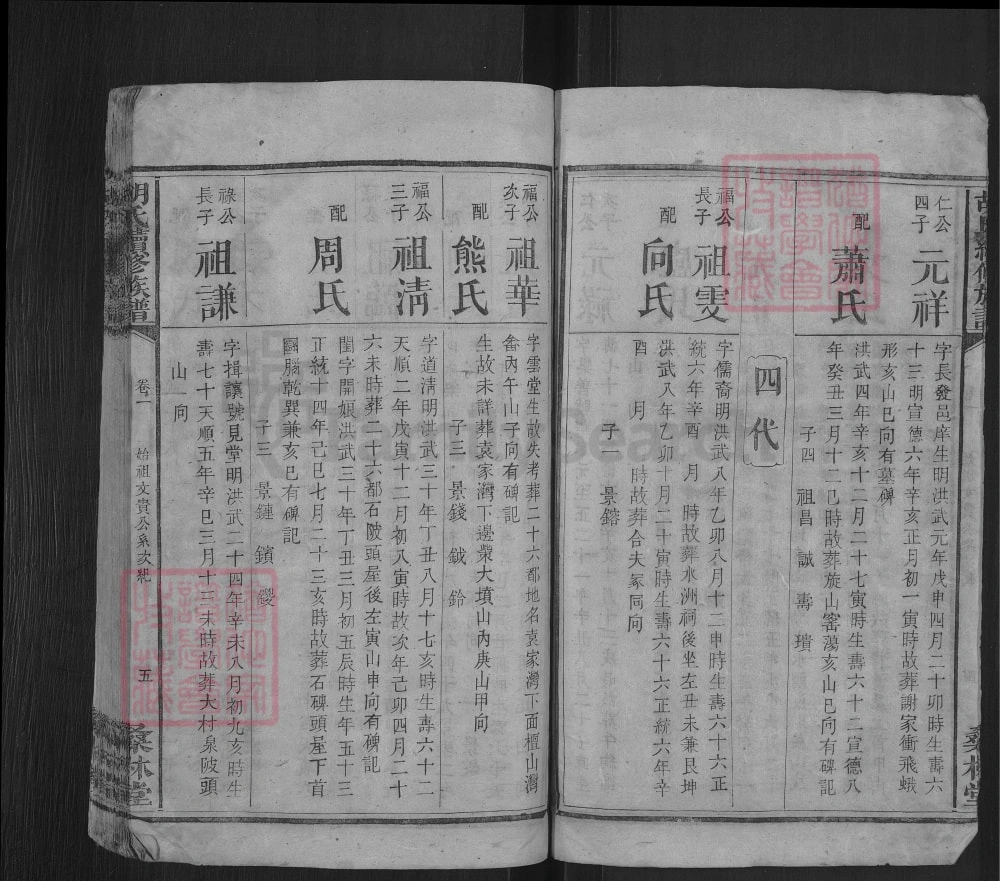 仁公四子
元祥
字長發邑庠生明洪武元年戊申四月二十卯時生壽六
十三明宣德六年辛亥正月初一寅時故葬謝家衝飛蛾
形亥山巳向有墓碑
配
蕭氏
洪武四年辛亥十二月二十七寅時生壽六十二宣德八
年癸丑三月十二巳時故葬旋山窰蕩亥山巳向有碑記
子四 祖昌 誠 壽 璸
四代
福公長子
祖雯
字儒裔明洪武八年乙卯八月十二申時生壽六十六正
統六年辛酉 月 時故葬水洲祠後坐左丑未兼艮坤
配
向氏
洪武八年乙卯十月二十寅時生壽六十六正統六年辛
酉 月 時故葬合夫冢同向
山
子一 景鎔
福公次子
祖華
字雲堂生故失考葬二十六都地名袁家灣下面檀山灣
畲內午山子向有碑記
配
熊氏
生故未詳葬袁家灣下邊柴大墳山內庚山甲向
子三 景錢 鉞 鈴
福公三子
祖清
字道清明洪武三十年丁丑八月十七亥時生壽六十二
天順二年戊寅十二月初八寅時故次年己卯四月二十
六未時葬二十六都石陂頭屋後左寅山申向有碑記
配
周氏
閨字開娘洪武三十年丁丑三月初五辰時生年五十三
正統十四年己巳七月二十三亥時故葬石碑頭屋下首
腦乾巽兼亥巳有碑記
子三 景鏈 鑌 鑁
祿公長子
祖謙
字揖讓號見堂明洪武二十四年辛未八月初九亥時生
壽七十天順五年辛巳三月十三未時故葬大村泉陂頭
山 向
胡氏續修族譜
卷一
始祖文貴公系次紀
五
桑林堂